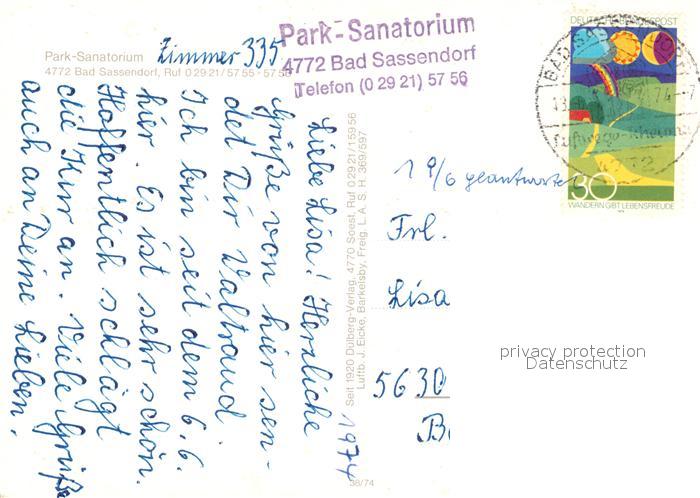 Park-Sanatorium
4772 Bad Sassendorf, Ruf 0 29 21 / 57 55 - 57 58
Zimmer 335
Park-Sanatorium
4772 Bad Sassendorf
Telefon (0 29 21) 57 56
Liebe Lisa! Herzliche
Grüße von hier sen-
det Dir Waltraud
Ich bin seit dem 6.6.
hier. Es ist sehr schön.
Hoffentlich schlägt
die Kur an. Viele Grüße
auch an Deine Lieben.
1974
Seit 1920 Dülberg-Verlag, 4770 Soest, Ruf 0 29 21 / 159 56
Luftb. J. Eicke, Barkelsby, Freig. L. A. S. H. 369/597
38/74
DEUTSCHE BUNDESPOST
30
WANDERN GIBT LEBENSFREUDE
BAD SASSENDORF
19/6 geantwortet
Frl.
Lisa
5630
privacy protection
Datenschutz